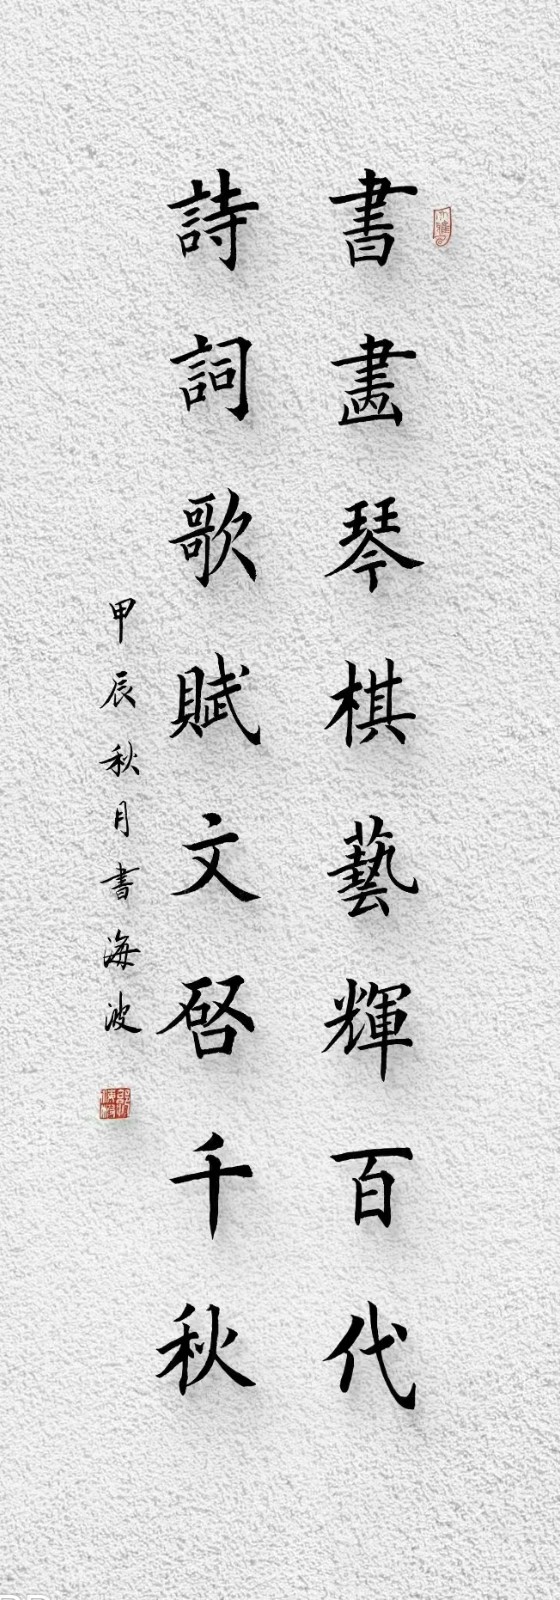 書畫琴棋藝輝百代
詩詞歌賦文啓千秋
甲辰秋月書海波